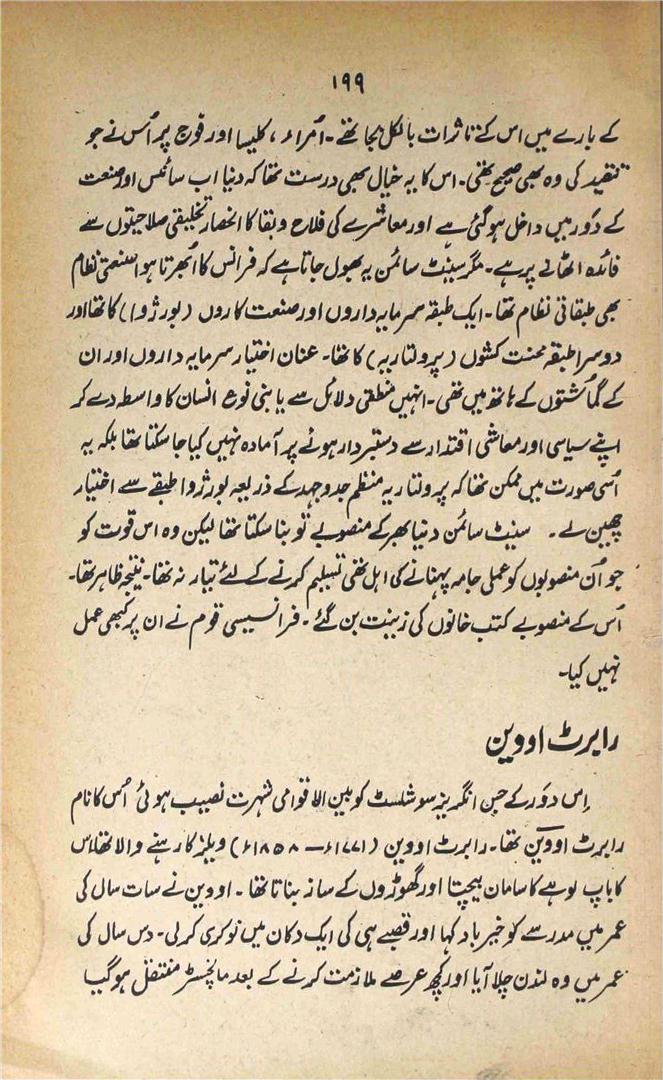 ۱۹۹
کے بارے میں اس کے تاثرات بالکل بجا تھے۔ اُمراء، کلیسا اور فوج پر اُس نے جو
تنقید کی وہ بھی صحیح تھی۔ اس کا یہ خیال بھی درست تھا کہ دنیا اب سائنس اور صنعت
کے دَور میں داخل ہو گئی ہے اور معاشرے کی فلاح و بقا کا انحصار تخلیقی صلاحیتوں سے
فائدہ اٹھانے پر ہے۔ مگر سینٹ سائمن یہ بھول جاتا ہے کہ فرانس کا اُبھرتا ہوا صنعتی نظام
بھی طبقاتی نظام تھا۔ ایک طبقہ سرمایہ داروں اور صنعت کاروں (بورژوا) کا تھا اور
دوسرا طبقہ محنت کشوں (پرولتاریہ) کا تھا۔ عنان اختیار سرمایہ داروں اور ان
کے گماشتوں کے ہاتھ میں تھی۔ انہیں منطقی دلائل سے یا بنی نوع انسان کا واسطہ دے کر
اپنے سیاسی اور معاشی اقتدار سے دستبردار ہونے پر آمادہ نہیں کیا جا سکتا تھا بلکہ یہ
اُسی صورت میں ممکن تھا کہ پرولتاریہ منظم جدوجہد کے ذریعہ بورژوا طبقے سے اختیار
چھین لے۔ سینٹ سائمن دنیا بھر کے منصوبے تو بنا سکتا تھا لیکن وہ اس قوت کو
جو اُن منصوبوں کو عملی جامہ پہنانے کی اہل تھی تسلیم کرنے کے لئے تیار نہ تھا۔ نتیجہ ظاہر تھا۔
اُس کے منصوبے کتب خانوں کی زینت بن گئے۔ فرانسیسی قوم نے ان پر کبھی عمل
نہیں کیا۔
رابرٹ اووین
اِس دَور کے جن انگریز سوشلسٹ کو بین الاقوامی شہرت نصیب ہوئی اُس کا نام
رابرٹ اووین تھا۔ رابرٹ اووین (۱۷۷۱ء – ۱۸۵۸ء) ویلز کا رہنے والا تھا۔ اس
کا باپ لوہے کا سامان بیچتا اور گھوڑوں کے ساز بناتا تھا۔ اووین نے سات سال کی
عمر میں مدرسے کو خیرباد کہا اور قصبے ہی کی ایک دکان میں نوکری کر لی۔ دس سال کی
عمر میں وہ لندن چلا آیا اور کچھ عرصے ملازمت کرنے کے بعد مانچسٹر منتقل ہو گیا